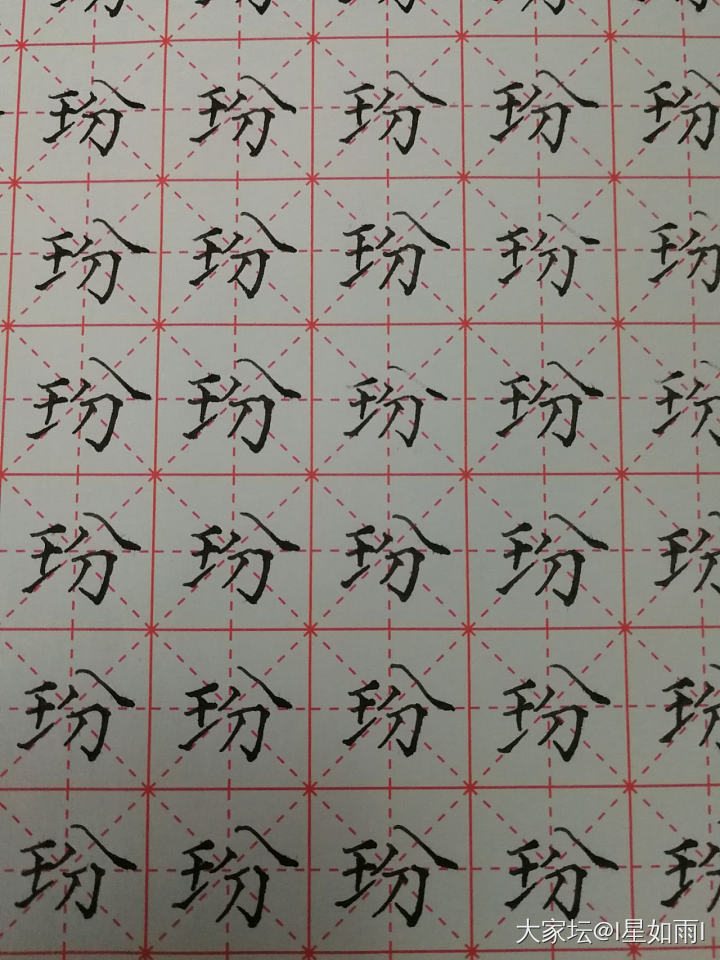 玢 玢 玢 玢 玢
玢 玢 玢 玢 玢
玢 玢 玢 玢 玢
玢 玢 玢 玢 玢
玢 玢 玢 玢 玢
玢 玢 玢 玢 玢
大家坛@I星如雨I